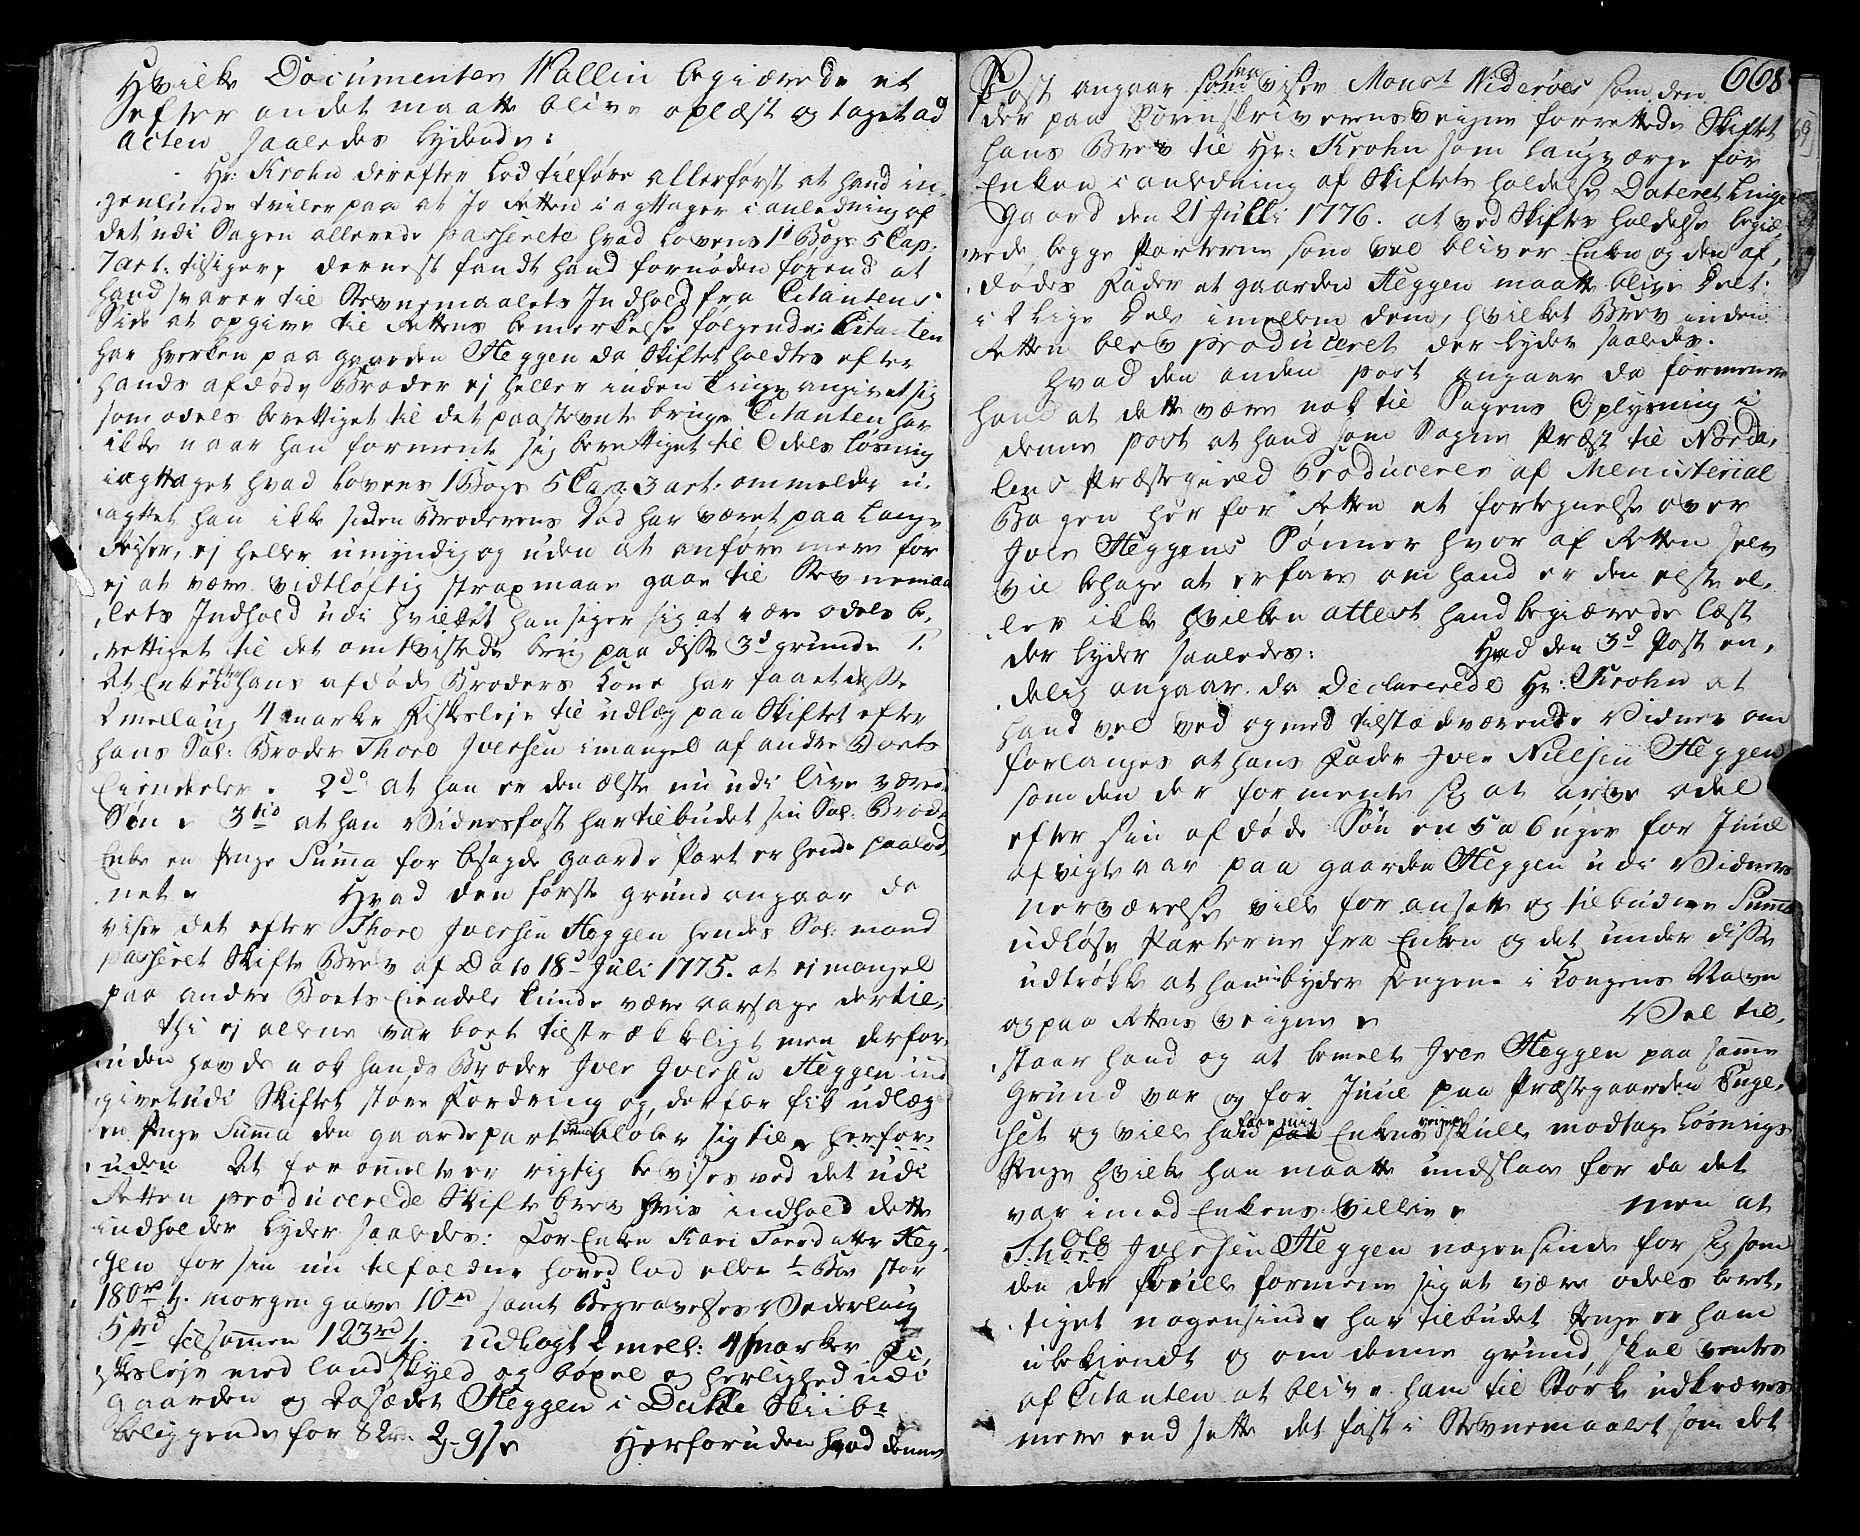 Hvilke Documenter Wallin begiærede et
efter andet maatte blive oplæst og taget ad
acten saaledes lydende:
Hr: Krohn derefter lod tilføre allerførst at hand in-
genlunde tviler paa at Jo Retten iagttager i anledning af
det udi Sagen allerede passerete hvad Lovens 1te Bogs 5 Cap:
7 art: tilsiger, dernest fandt hand fornøden førend at
hand svarer til Stevnemaalets Indhold fra Citantens
Side at opgive til Rettens bemerkelse følgende: Citanten
har hverken paa gaarden Heggen da Skiftet holdtes efter
hands afdøde Broder ej heller inden Tinge angivet sig
som odels berettiget til det paastevnte brug, Citanten har
ikke naar han formente sig berettiget til Odels Løsning
iagttaget hvad Lovens 1 Bogs 5 Cap: 3 art: ommelder u-
agttet han ikke siden Broderens Død har været paa lange
Reiser, ej heller umyndig og uden at anføre mere for
ej at være vidtløftig strax maae gaae til Stevnemaa-
lets Indhold udi hvilket han siger sig at være odels be-
rettiget til det omtvistede brug paa disse 3de grunde 1.
At Enken efter hans afdøde Broders Kone har faaet disse
2 mellaug 4 marker Fiskeleje til udlæg paa Skiftet efter
hans Sal: Broder Thore Iversen i mangel af andre Boets
Eiendeler. 2do at han er den ælste nu udi live være
Søn. 3tio at han Vidnesfast har tilbudet sin Sal: Brod
Enke en Penge Summa for besagde gaarde Part er hende paalod
net. Hvad den første grund angaar da
viser det efter Thore Iversen Heggen hendes Sal: mand
passeret Skifte Brev af Dato 18de Juli 1775. at ej mangel
paa andre Boets Eiendele kunde være aarsage dertil,
thi ej allene var boet tilstrækkeligt men derfor-
uden havde nok hands Broder Iver Iversen Heggen ind
givet udi Skiftet større Fordring og derfor fik udlæg
en Penge Summa den gaardepart beløber sig til, herfor-
uden At foranmelte er rigtig bevises ved det udi
Retten producerede Skifte brev hvis indhold dette
indholder lyder saaledes: For Enken Kari Tores datter Heg-
gen for sin nu tilfaldne hoved lod eller 1/2 Boe stor
180 rd morgen gave 10 rd samt Begravelses Vederlaug
5 rd tilsammen 123 rd udlagt 2 mell: 4 marker Fi-
skeleje med landskyld og bøxel og herlighed udi
gaarden og Lasædet Heggen i Dahle Skiibr
beliggende for 82 rd. 2-9 s. Herforuden hvad denne
668
Post angaar saa viser Monsr Niderøes som den
der paa Sorenskriverens vegne forrettede Skiftet
hans Brev til Hr: Krohn som laugværge for
Enken i anledning af Skiftets holdelse Dateret Linge
gaard den 21 Julli 1776. at ved Skifte holdelse begiæ-
rede begge Parterne som vel bliver Enken og den af-
dødes Fader at gaarden Heggen maatte blive Delt
i 2 lige Dele imellem dem, hvilket Brev inden
Retten blev produceret der lyder saaledes.
Hvad den anden post angaar da formener
hand at dette være nok til Sagens Oplysning i
denne post at hand som Sogne Præst til Norda-
lens Præstegield Producerer af Menisterial
Bogen her for Retten et fortegnelse over
Iver Heggens Sønner hvor af Retten selv
vil behage at erfare om hand er den elste el-
ler ikke hvilken attest hand begiærede læst
der lyder saaledes: Hvad den 3de Post en-
delig angaar da Declarerede Hr: Krohn at
hand vel ved og med tilstædeværende Vidner om
forlanges at hans Fader Iver Nielsen Heggen
som den der formente sig at arve odel
efter sin afdøde Søn en 5 a 6 uger for Juul
afvigte var paa gaarden Heggen udi Vidners
nerværelse ville for ansatte og tilbudne Summa
udløse Parterne fra Enken og det under disse
udtrøkke at han tilbyder pengene i Kongens Navn
og paa Rettens veigne. Vel til-
staar hand og at bemelte Iver Heggen paa samme
Grund var og for Juul paa Præstegaarden Tuge-
set og ville hand Enkens veigne skulle modtage Løsnings
Penge hvilke han maatte undslaae for da det
var imod Enkens villie. men at
Ole Iversen Heggen nogensinde for sig som
den der skulle formene sig at være odels beret-
tiget nogensinde har tilbudet Penge er ham
ubekiendt og om denne grund skal ventes
af Citanten at blive ham til Støtte udkræves
mere end sette det fast i Stevnemaalet som det